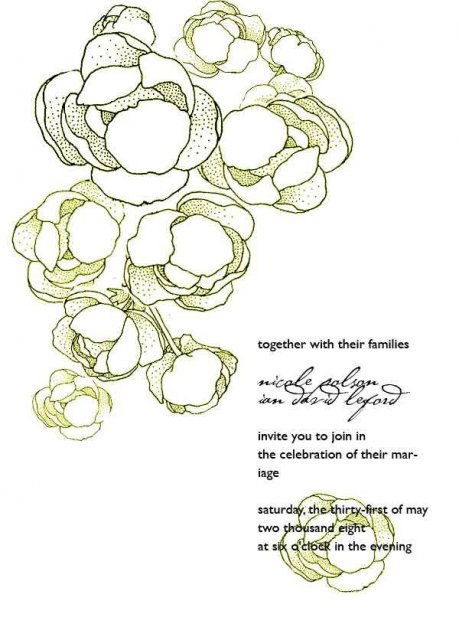 together with their families
nicole polson
ian david leford
invite you to join in
the celebration of their mar-
iage
saturday, the thirty-first of may
two thousand eight
at six o'clock in the evening